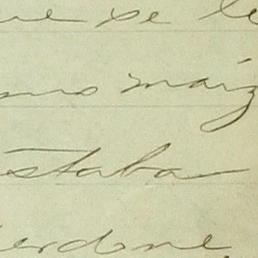 ue se le
mo maiz
estaba
erdone